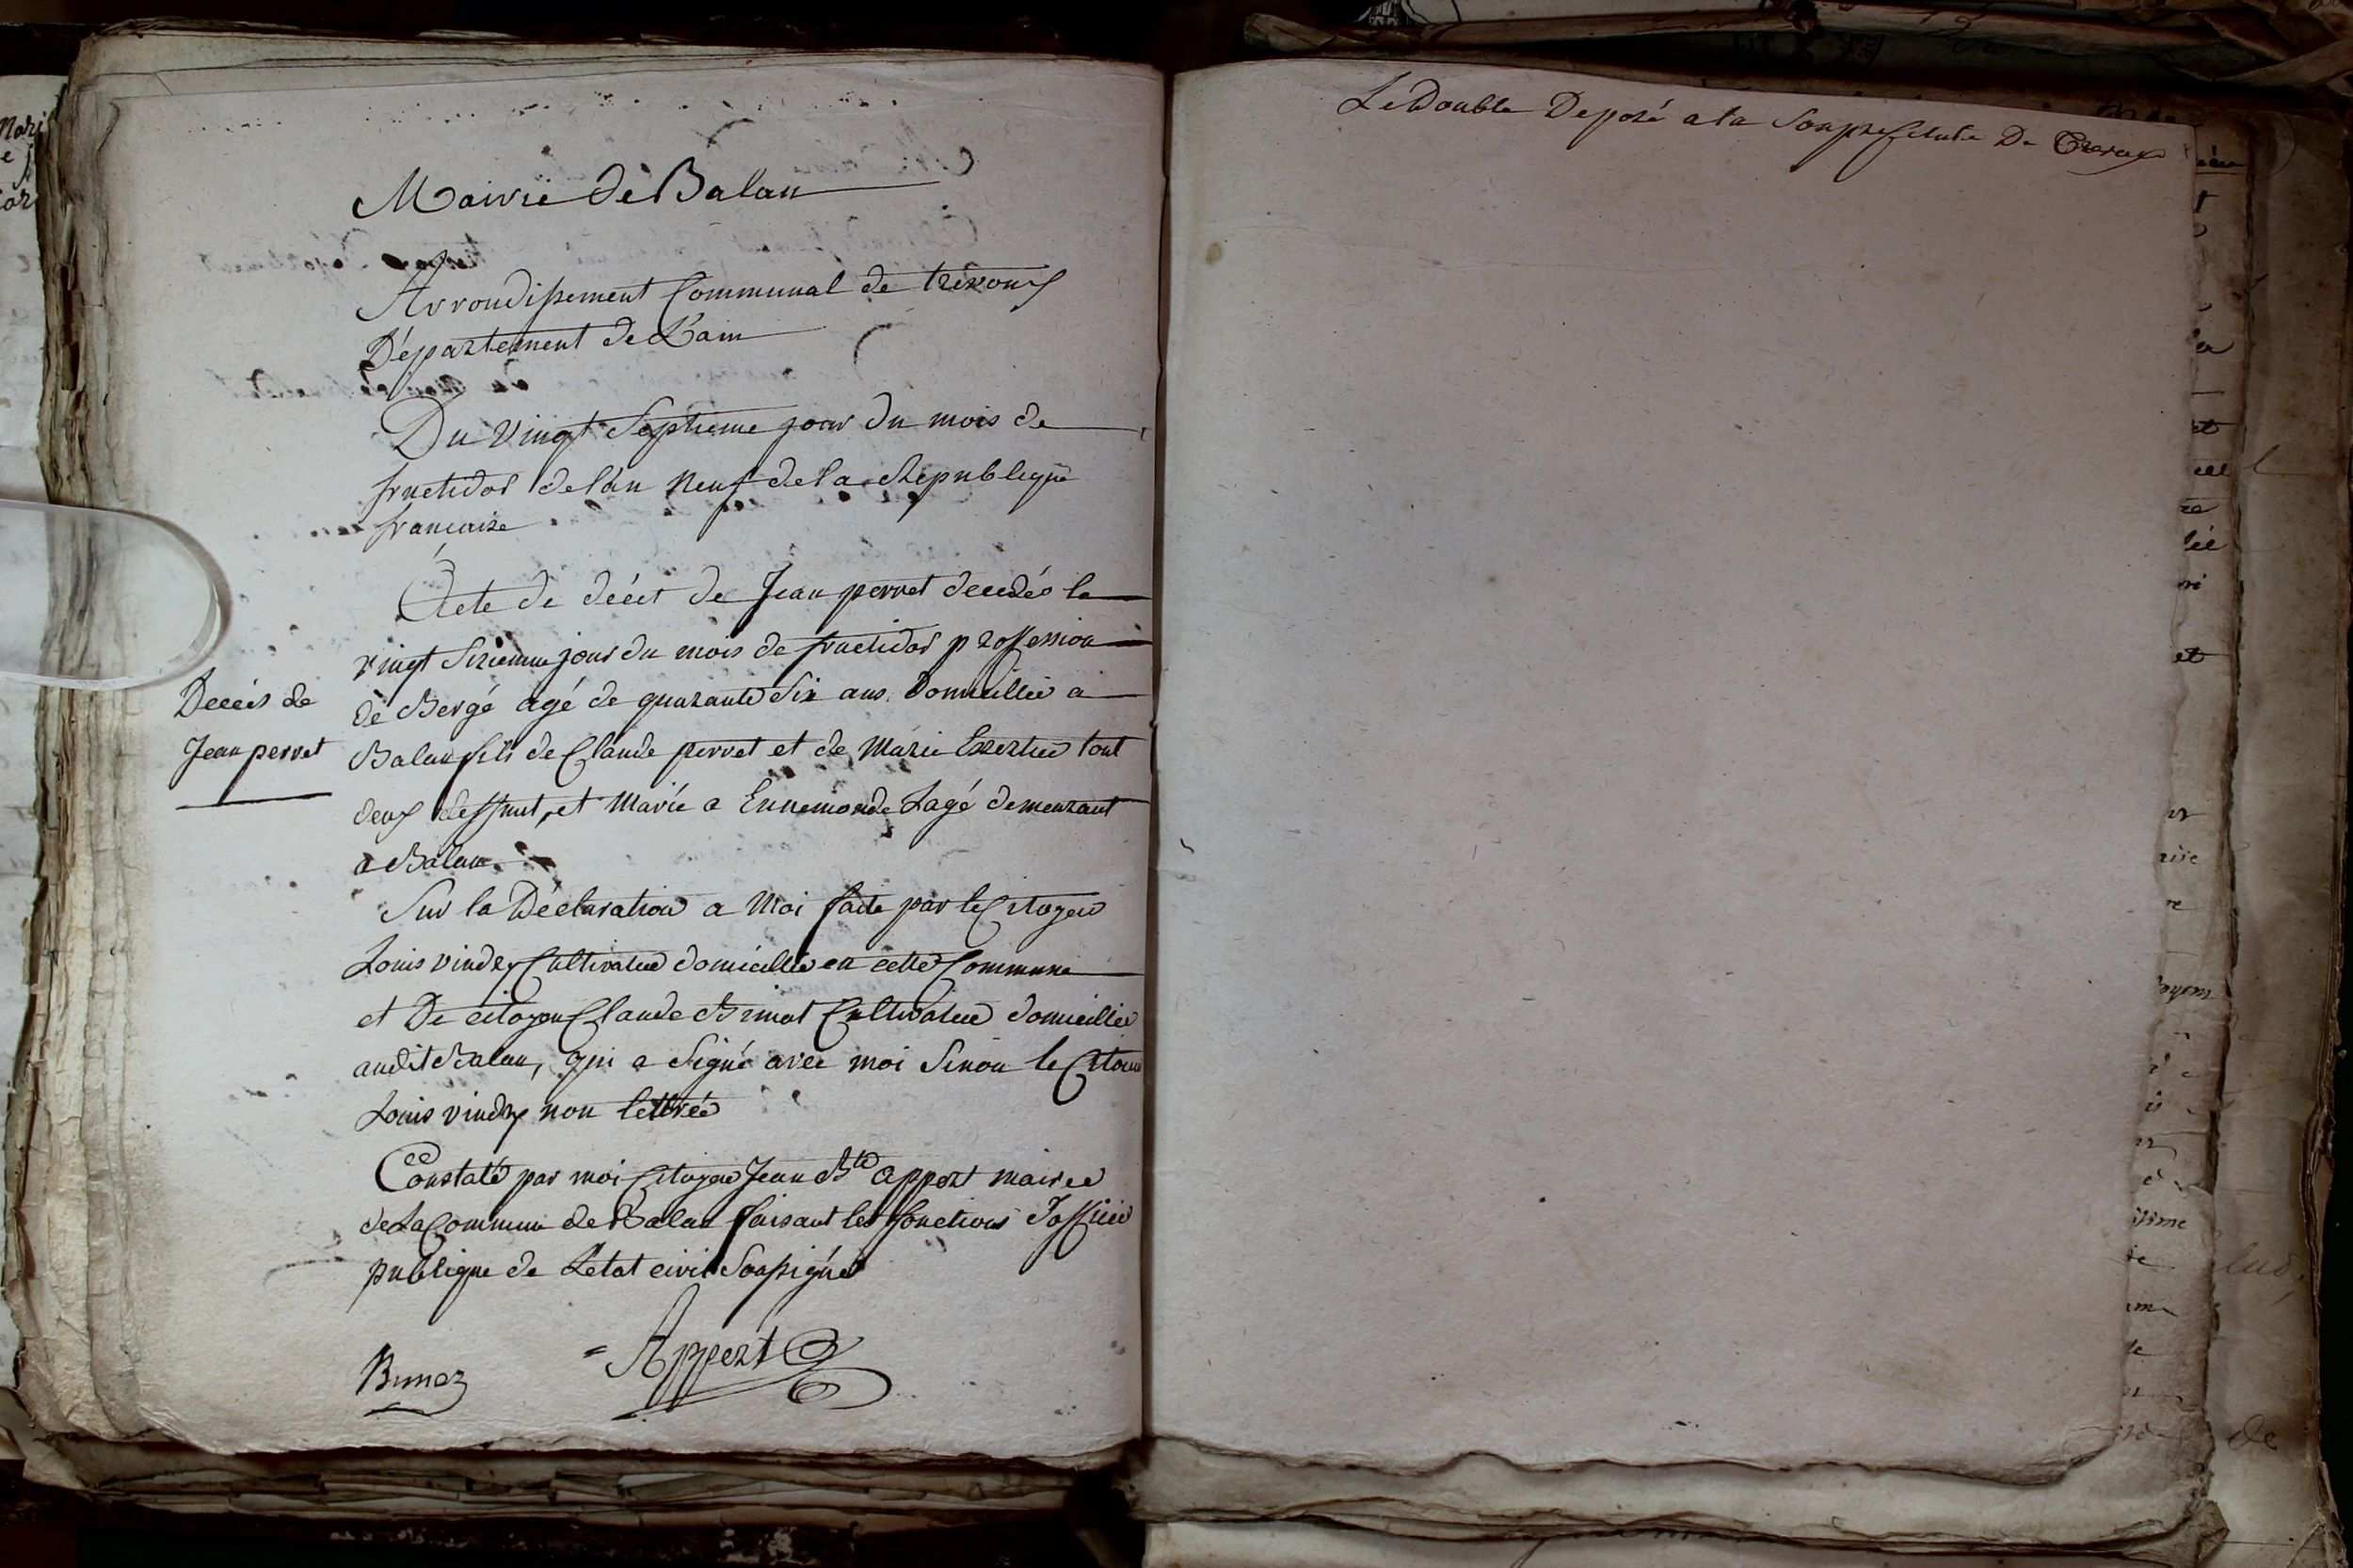 Mairie de Balan
Arrondissement Communal de trévoux
Département de L'ain
Du Vingt Septieme jour du mois de
fructidor de l'an Neuf de la Republique
francaise
Acte de décét de Jean perret decedés le
vingt Sixieme jour du mois de fructidor proffession
de Bergé agé de quarante Six ans Domicillié a
Balan fils de Claude perret et de Marie Exertier tout
deux deffunt, et Marié a Ennemonde Lagé demeurant
a Balan.
Decés de
Jean perret
Sur la Déclaration a Moi faite par le Citoyen
Louis vindry Cultivateur domicillié en cette Commune
et De citoyen Claude Brunot Cultivateur domicillié
audit Balan, qui a Signé avec moi Sinon le Citoien
Louis vindry non lettrée
Constaté par moi Citoyen Jean Bte appert maire
de La Commune de Balan faisant les fonctions d'officié
publique de L'etat civil Soussigné
Brunoz
Appert
Le Double Deposé a la Souprefecture De Trevoux